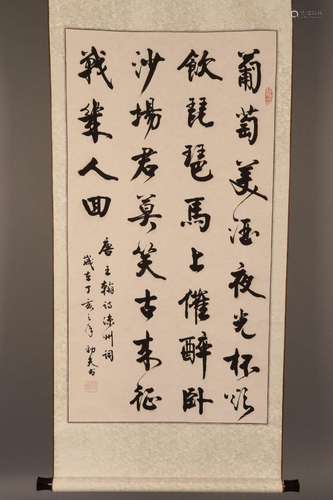 葡萄美酒夜光杯欲
飲琵琶馬上催醉卧
沙場君莫笑古来征
戰幾人回
唐王翰诗凉州詞
歲在丁亥之年